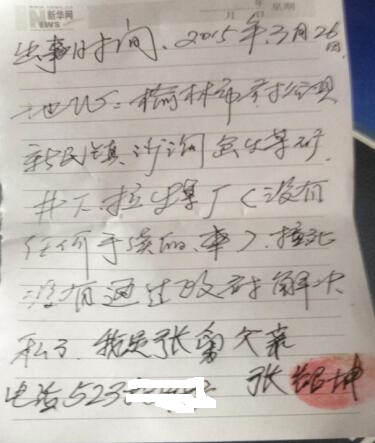 新华网
News
年 星期
月 日
出事时间、2015年3月26日
地址:榆林市府谷县
新民镇沙沟岔煤矿
井下拉煤厂(没有
任何手续的车)撞死
没有通过政府解决
私了 我是张 父亲
电话523 张 坤